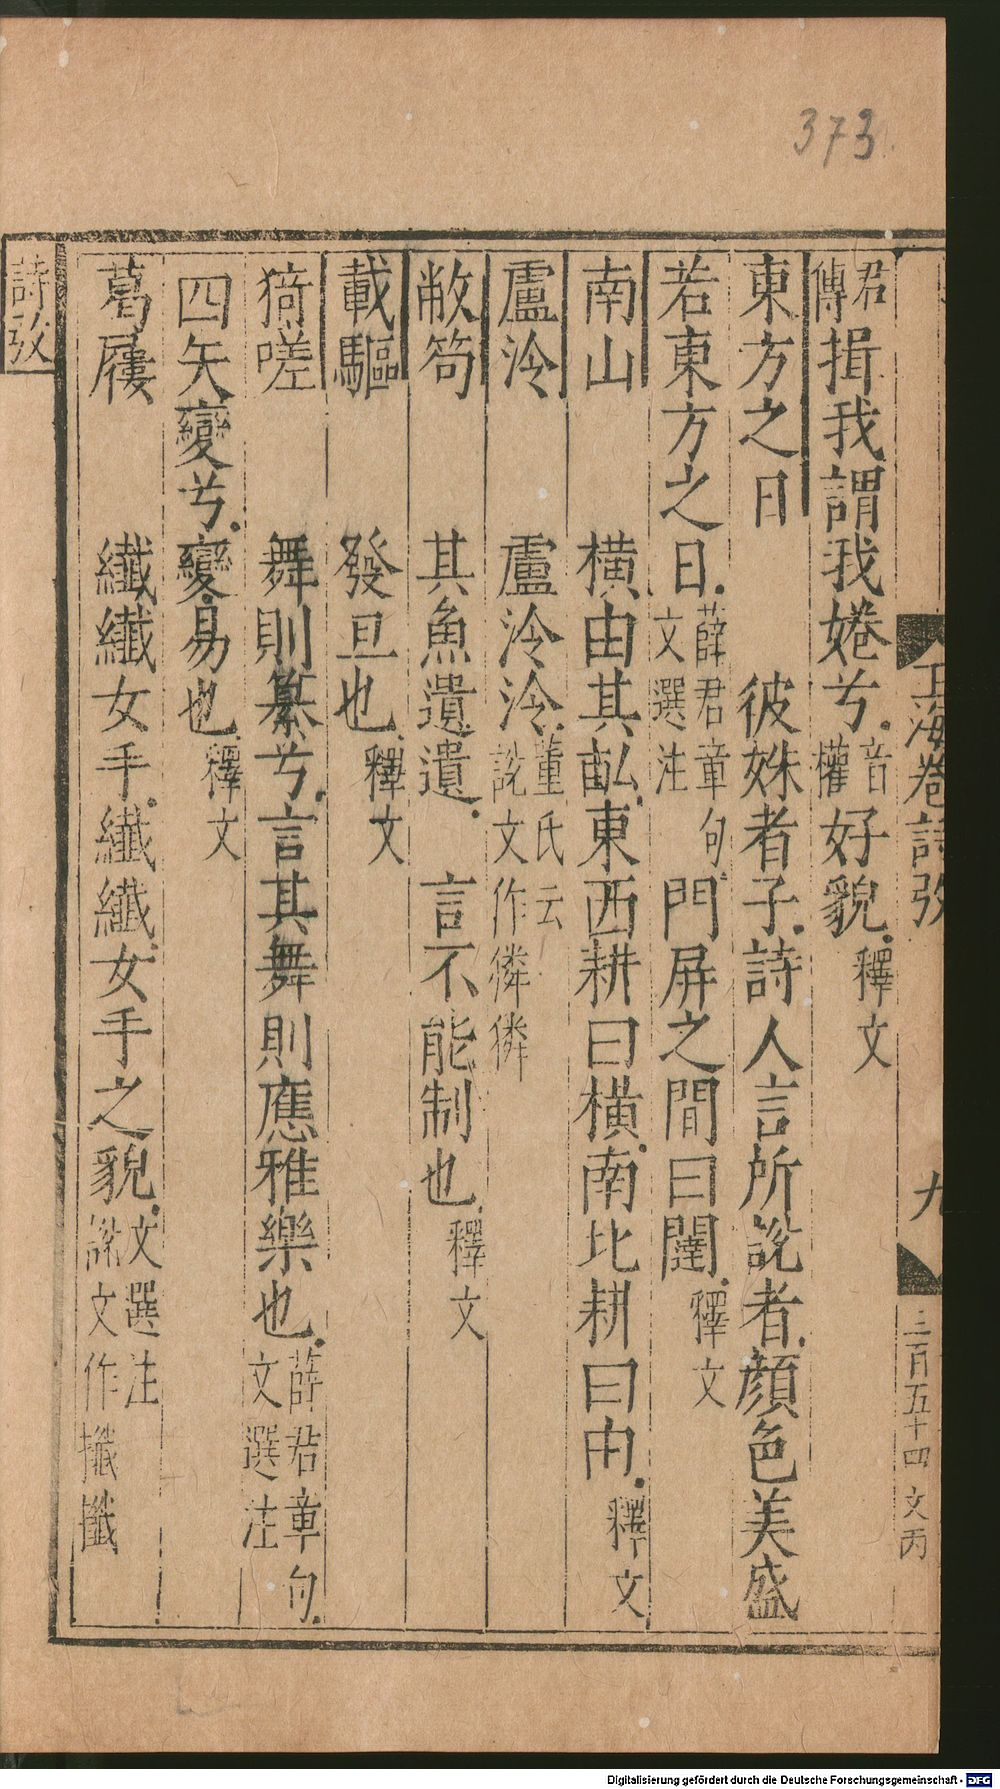 373
玉海卷詩攷
九
三百五十四 文丙
君傳揖我謂我婘兮音權好貌釋文
東方之日 彼姝者子詩人言所說者顏色美盛
若東方之日薛君章句文選注門屏之間曰闥釋文
南山 橫由其畝東西耕曰橫南北耕曰由釋文
盧泠 盧泠泠董氏云說文作獜獜
敝笱 其魚遺遺 言不能制也釋文
載驅 發旦也釋文
猗嗟 舞則纂兮言其舞則應雅樂也薛君章句文選注
四矢變兮變易也釋文
葛屨 纖纖女手纖纖女手之貌文選注說文作攕攕
詩攷
Digitalisierung gefördert durch die Deutsche Forschungsgemeinschaft - DFG